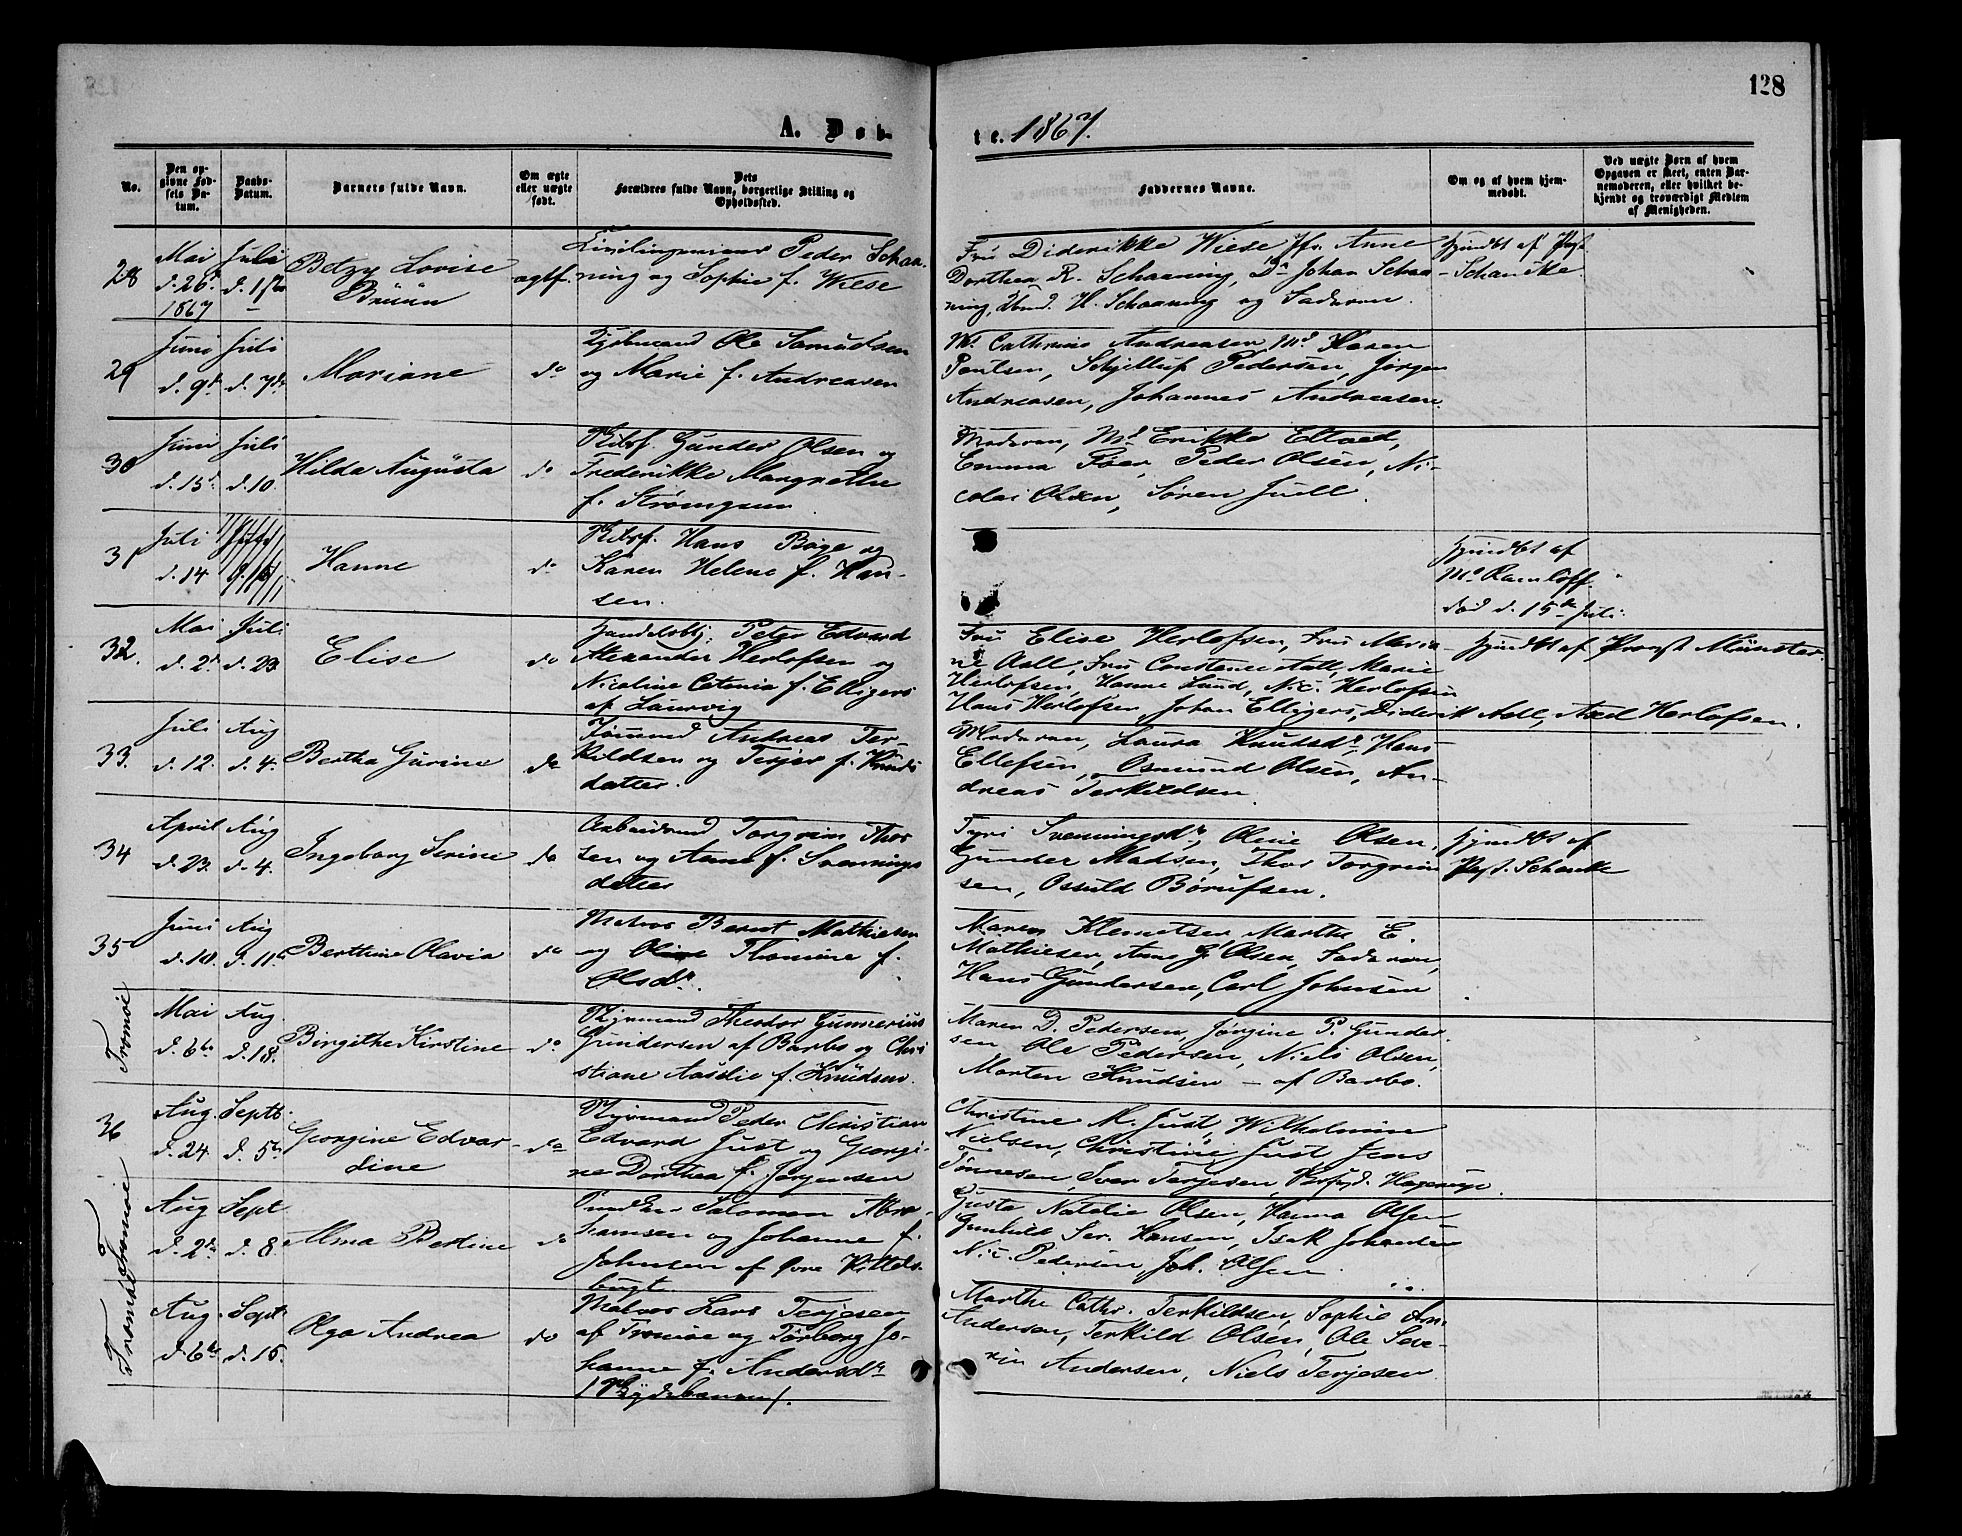 128
A. Døb-
te. 1867.
No.
Den op-
givne Fød-
sels Da-
tum.
Daabs-
Datum.
Barnets fulde Navn.
Om ægte
eller uægte
født.
Dets
Forældres fulde Navn, borgerlige Stilling og
Opholdssted.
Faddernes Navne.
Om og af hvem hjem-
medøbt.
Ved uægte Børn af hvem
Opgaven er skeet, enten Bar-
nemoderen, eller hvilket be-
kjendt og troværdigt Medlem
af Menigheden.
28
Mai
d. 26
1867
Juli
d. 1ste
Betzy Lovise
Brüün
ægtf.
Civilingenieur Peder Schan-
ning og Sophie f. Wiese
Fru Diderikke Wiese Jfr. Anne
Dorthea R. Schanning, Dr Johan Schan-
ning, H. Schanning og Faderen.
Hjmdbt af Pgst.
Schancke
29
Juni
d. 9de
Juli
d. 7de
Mariane
do
Kjøbmand Ole Samuelsen
og Marie f. Andreasen
Md. Cathrine Andreasen, Md Karen
Pontsen, Schjellup Pedersen, Jørgen
Andreasen, Johannes Andreasen.
30
Juni
d. 15de
Juli
d. 10.
Hilda Augusta
do
Gunder Olsen og
Frederikke Margrethe
f. Strømgren
Moderen, Md Erikke Eltved,
Emma Foer, Peder Olsen, Ni-
colai Olsen, Søren Juell.
31
Juli
d. 14
Juli
d. 15
Hanne
do
Hans Bøge og
Karen Helene f. Han-
sen.
Hjmdbt af
Md Ramløff.
død d. 15de Juli.
32.
Mai
d. 2de
Juli
d. 23
Elise
do
Handelsbtj. Peter Edvard
Alexander Herlofsen og
Nicoline Catonia f. Elligers
af Laurvig
Fru Elise Herlofsen, Fru Maria-
ne Aall, Fru Constance Aall, Marie
Herlofsen, Hanne Lund, Nic. Herlofsen
Hans Herlofsen, Johan Elligers, Diderik Aall, Axel Herlofsen.
Hjmdbt af Provst Münster.
33.
Juli
d. 12.
Aug
d. 4.
Bertha Gurine
do
Tømmrmd Andreas Ter-
kildsen og Terjer f. Knuds
datter.
Moderen, Laura Knudsdr, Hans
Ellefsen, Osmund Olsen, An-
dreas Terkildsen.
34
April
d. 23.
Aug
d. 4.
Ingeborg Serine
do
Arbeidsmd Torgrim Thor
sen og Anne f. Svennings
datter
Tyri Svenningsdr, Oline Olsen,
Gunder Madsen, Thor Torgrim
sen, Osuld Børufsen.
Hjmdbt af
Pgst. Schancke
35
Juni
d. 10.
Aug
d. 11te
Berthine Olavia
do
Matros Bernt Mathiesen
og Oline Thomine f.
Olsdr.
Maren Klemetsen Marthe E.
Mathiesen, Anne G. Olsen, Faderen,
Hans Gundersen, Carl Johnsen
Tromøe
Mai
d. 6te
Aug.
d. 18.
Birgithe Kirstine
do
Styrmand Theodor Gunnerius
Gundersen af Barbo og Chri
stiane Amalie f. Knudsen.
Maren D. Pedersen, Jørgine P. Gunder-
sen Ole Pedersen, Niels Olsen,
Morten Knudsen – af Barbo.
36
Aug.
d. 24.
Septb.
d. 5te
Georgine Edvar-
dine
do
Styrmand Peder Christian
Edvard Just og Georgi-
ne Dorthea f. Jørgensen
Christine M. Just, Wilhelmine
Nielsen, Christine Just, Jens
Tønnesen, Sver Terjesen,
Tromøe
Aug
d. 2de
Sept
d. 8.
Alma Bertine
do
Salomon Abra-
hamsen og Johanne f.
Johnsen af Øvre Kittels-
bugt.
Guste Natalie Olsen, Hanna Olsen
Gunhild Ser. Hansen, Isak Johansen
Nic. Pedersen, Joh. Olsen
Tromøe
Aug.
d. 6te
Sept.
d. 15.
Olga Andrea
do
Matros Lars Terjesen
af Tromøe og Torborg Jo-
hanne f. Andersdr
Marthe Cathr. Terkildsen, Sophie An.
Andersen, Terkild Olsen, Ole Seve-
rin Andersen, Niels Terjesen